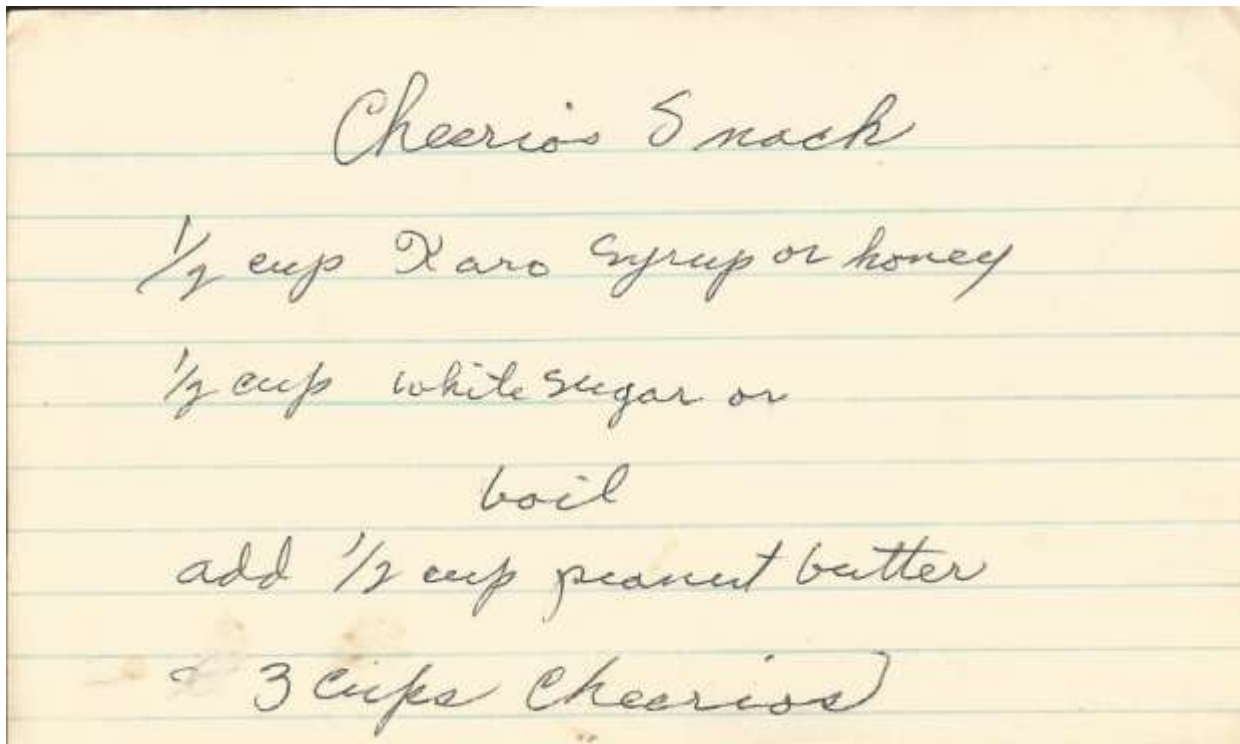 Cheerio's Snack
1/2 cup Karo Syrup or honey
1/2 cup white sugar or
boil
add 1/2 cup peanut butter
& 3 cups Cheerios